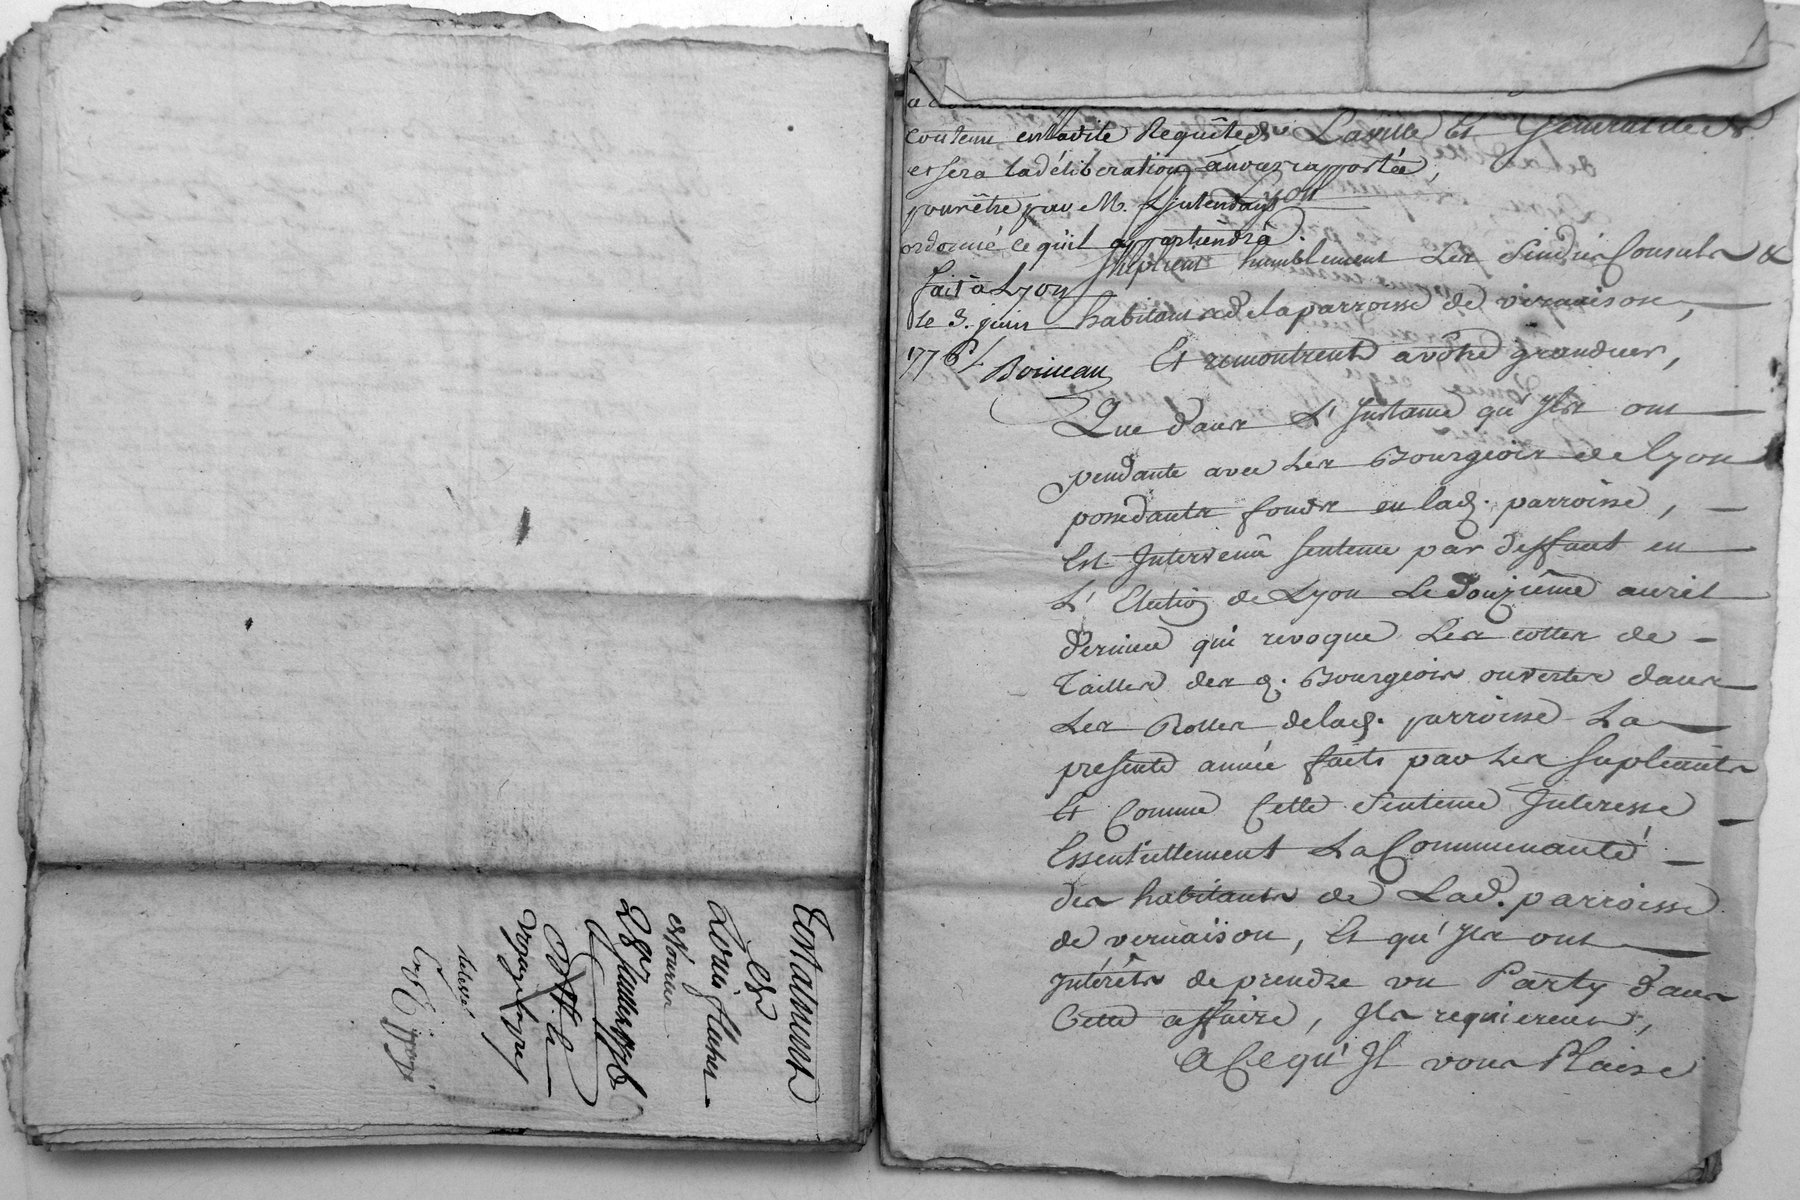 Testament
de
Louis
28 1776
contenu en ladite Requête
et sera la délibération à nous rapportée,
pour être par M. L'Intendant
ordonné ce qu'il appartiendra.
fait à Lyon
le 3. juin
1776
La ville Et Generalité de
Lyon
Suplient humblement Les Sindics Consuls &
habitans de la parroisse de vernaison,
Et remontrent a vôtre grandeur,
Que dans L'Instance qu'Ils ont
pendante avec Les Bourgeois de Lyon
possedants fonds en lad. parroisse,
Est Intervenû sentence par deffaut en
L'Election de Lyon Le douziême avril
dernier qui revoque Les cottes de
Tailles des d. Bourgeois ouvertes dans
Les Rolles de lad. parroisse La
presente année faits par Les supliants
Et Comme Cette Sentence Interesse
Essentiellement La Communauté
des habitants de Lad. parroisse
de vernaison, Et qu'Ils ont
Intérêts de prendre un Party dans
Cette affaire, Ils requierent,
A Ce qu'Il vous Plaise